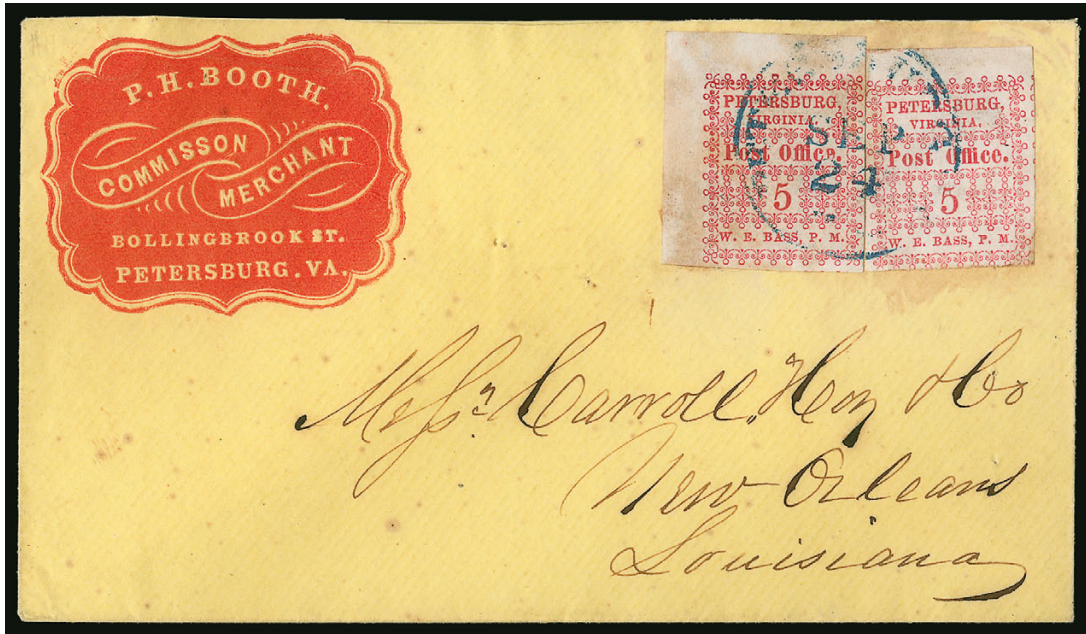 P. H. BOOTH.
COMMISSON
MERCHANT
BOLLINGBROOK ST.
PETERSBURG. VA.
PETERSBURG,
VIRGINIA.
Post Office.
5
W. E. BASS, P. M.
PETERSBURG,
VIRGINIA.
Post Office.
5
W. E. BASS, P. M.
SEP
24
Messr Carroll, Hoy & Co
New Orleans
Louisiana